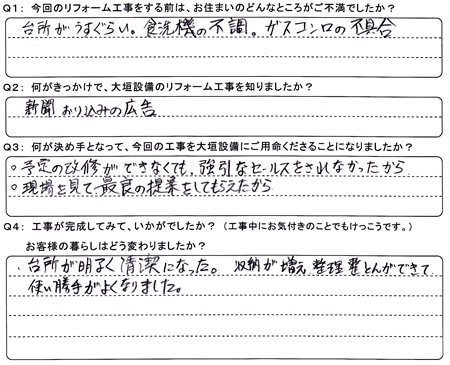 Q1: 今回のリフォーム工事をする前は、お住まいのどんなところがご不満でしたか?
台所がうすぐらい。食洗機の不調。ガスコンロの不具合
Q2: 何がきっかけで、大垣設備のリフォーム工事を知りましたか?
新聞おり込みの広告
Q3: 何が決め手となって、今回の工事を大垣設備にご用命くださることになりましたか?
○予定の改修ができなくても、強引なセールスをされなかったから
○現場を見て最良の提案をしてもらえたから
Q4: 工事が完成してみて、いかがでしたか?(工事中にお気付きのことでもけっこうです。)
お客様の暮らしはどう変わりましたか?
・台所が明るく清潔になった。収納が増え整理整とんができて
使い勝手がよくなりました。